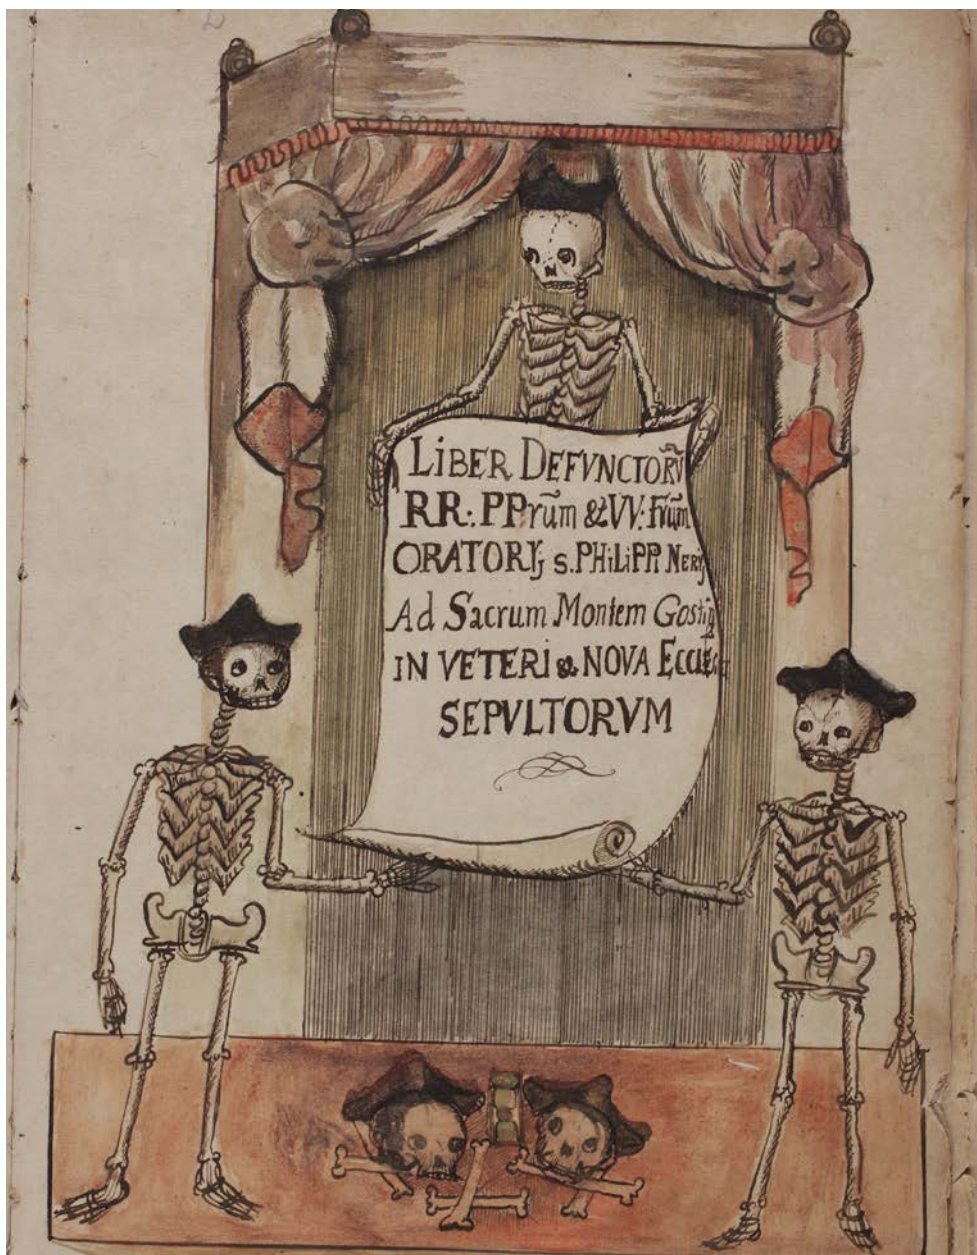 LIBER DEFVNCTORṼ
RR: PPrũm & VV: Frũm
ORATORIJ S. PHILIPPI NERIJ
Ad Sacrum Montem Gostyn
IN VETERI & NOVA
SEPVLTORVM